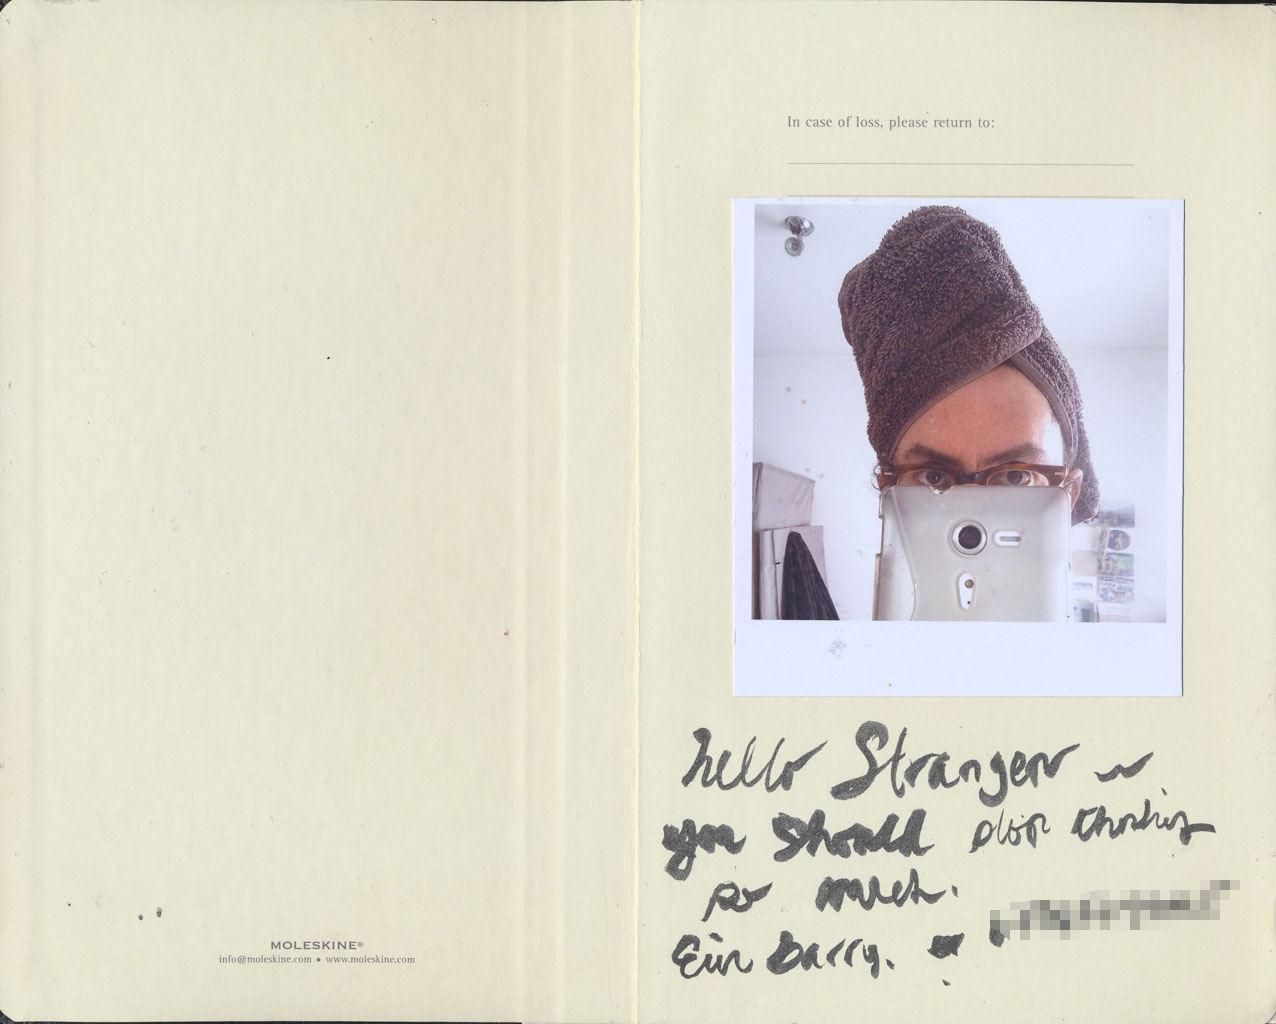 MOLESKINE®
info@moleskine.com • www.moleskine.com
In case of loss, please return to:
hello Stranger ~
you should stop thinking
so much.
Erin Barry.